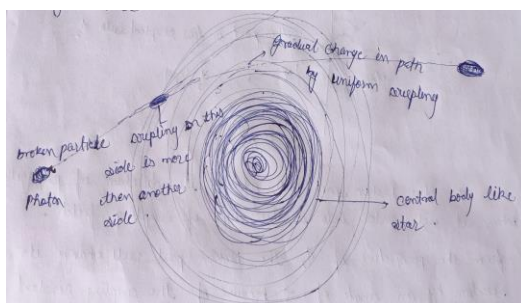 gradual change in path
by uniform coupling
broken particle
photon
coupling on this
side is more
then another
side.
central body like
star.